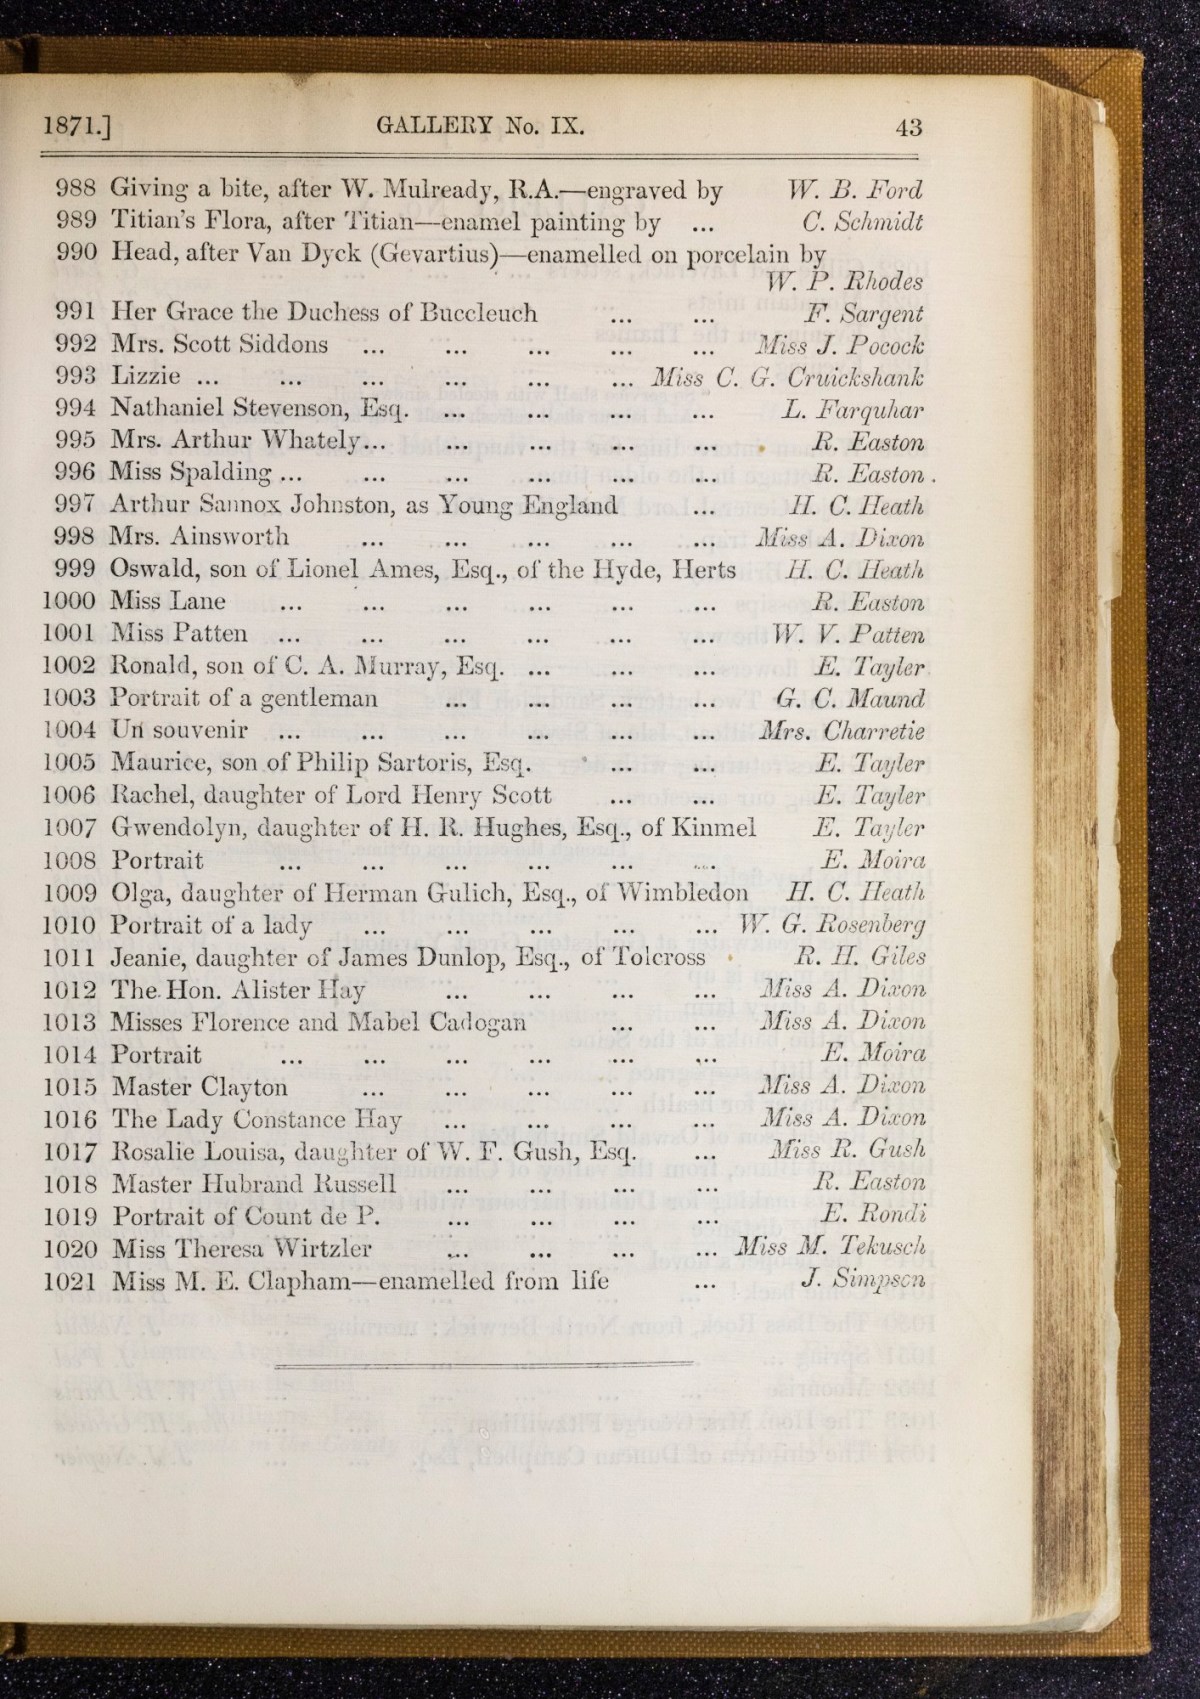 1871.] GALLERY No. IX. 43
988 Giving a bite, after W. Mulready, R.A.—engraved by W. B. Ford
989 Titian's Flora, after Titian—enamel painting by ... C. Schmidt
990 Head, after Van Dyck (Gevartius)—enamelled on porcelain by
W. P. Rhodes
991 Her Grace the Duchess of Buccleuch ... ... F. Sargent
992 Mrs. Scott Siddons ... ... ... ... ... Miss J. Pocock
993 Lizzie ... ... ... ... ... ... Miss C. G. Cruickshank
994 Nathaniel Stevenson, Esq. ... ... ... ... L. Farquhar
995 Mrs. Arthur Whately... ... ... ... ... R. Easton
996 Miss Spalding ... ... ... ... ... ... R. Easton.
997 Arthur Sannox Johnston, as Young England ... H. C. Heath
998 Mrs. Ainsworth ... ... ... ... ... Miss A. Dixon
999 Oswald, son of Lionel Ames, Esq., of the Hyde, Herts H. C. Heath
1000 Miss Lane ... ... ... ... ... ... R. Easton
1001 Miss Patten ... ... ... ... ... ... W. V. Patten
1002 Ronald, son of C. A. Murray, Esq. ... ... ... E. Tayler
1003 Portrait of a gentleman ... ... ... ... G. C. Maund
1004 Un souvenir ... ... ... ... ... ... Mrs. Charretie
1005 Maurice, son of Philip Sartoris, Esq. ... ... E. Tayler
1006 Rachel, daughter of Lord Henry Scott ... ... E. Tayler
1007 Gwendolyn, daughter of H. R. Hughes, Esq., of Kinmel E. Tayler
1008 Portrait ... ... ... ... ... ... E. Moira
1009 Olga, daughter of Herman Gulich, Esq., of Wimbledon H. C. Heath
1010 Portrait of a lady ... ... ... ... ... W. G. Rosenberg
1011 Jeanie, daughter of James Dunlop, Esq., of Tolcross R. H. Giles
1012 The Hon. Alister Hay ... ... ... ... Miss A. Dixon
1013 Misses Florence and Mabel Cadogan ... ... Miss A. Dixon
1014 Portrait ... ... ... ... ... ... E. Moira
1015 Master Clayton ... ... ... ... ... Miss A. Dixon
1016 The Lady Constance Hay ... ... ... ... Miss A. Dixon
1017 Rosalie Louisa, daughter of W. F. Gush, Esq. ... Miss R. Gush
1018 Master Hubrand Russell ... ... ... ... R. Easton
1019 Portrait of Count de P. ... ... ... ... E. Rondi
1020 Miss Theresa Wirtzler ... ... ... ... Miss M. Tekusch
1021 Miss M. E. Clapham—enamelled from life ... J. Simpson